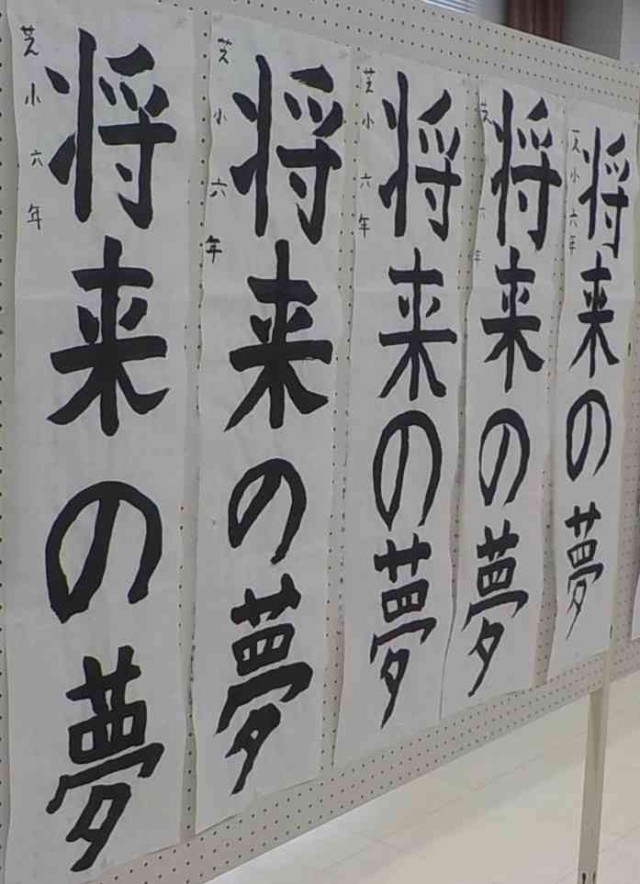 将来の夢
芝小六年
将来の夢
芝小六年
将来の夢
芝小六年
将来の夢
芝小六年
将来の夢
芝小六年